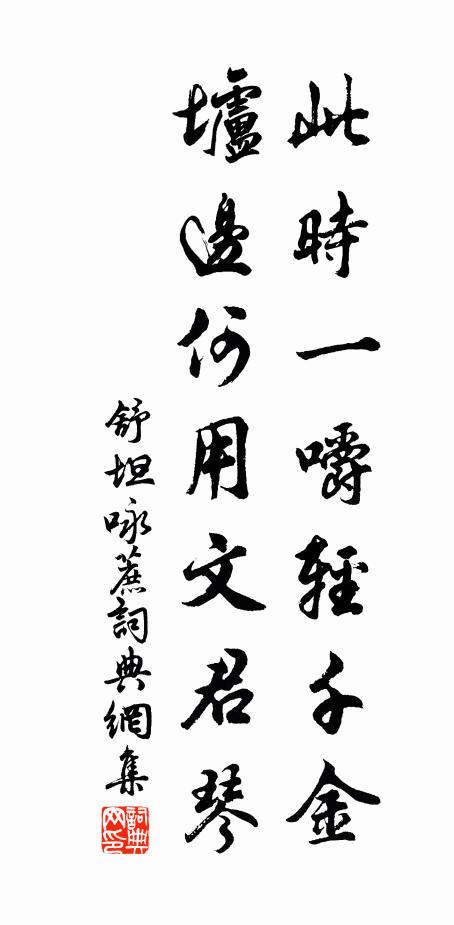 此時一嚼輕千金
壚邊何用文君琴
舒坦咏蔗詞典網集
詞典網印